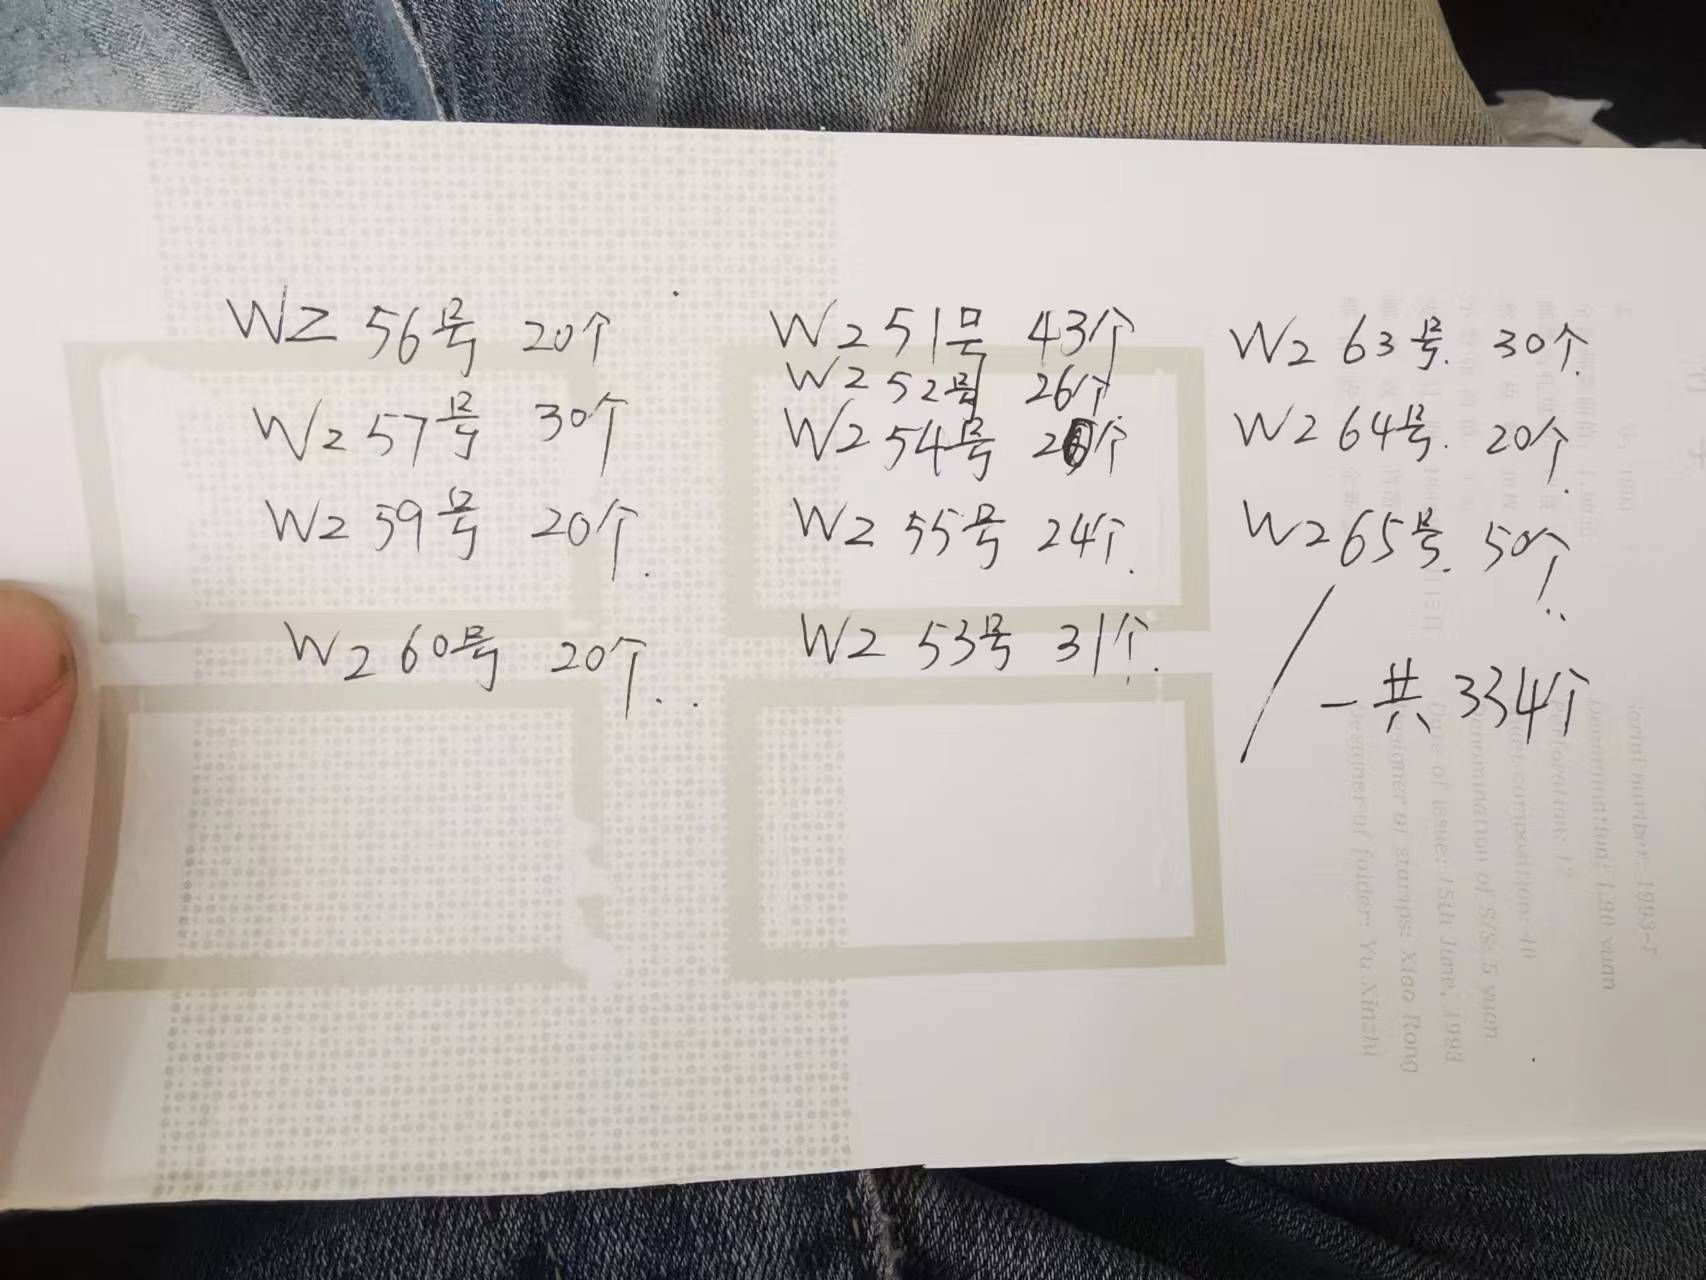 WZ 56号 20个
W2 57号 30个
W2 59号 20个.
W2 60号 20个..
W2 51号 43个
W2 52号 26个
W2 54号 个
W2 55号 24个.
W2 53号 31个.
W2 63号. 30个.
W2 64号. 20个.
W2 65号. 50个..
一共 334个
Serial number: 1993-5
Denomination: 1.90 yuan
Denomination of S/S: 5 yuan
Date of issue: 15th June, 1993
Designer of stamps: Xiao Rong
Designer of folder: Yu Xinzhi